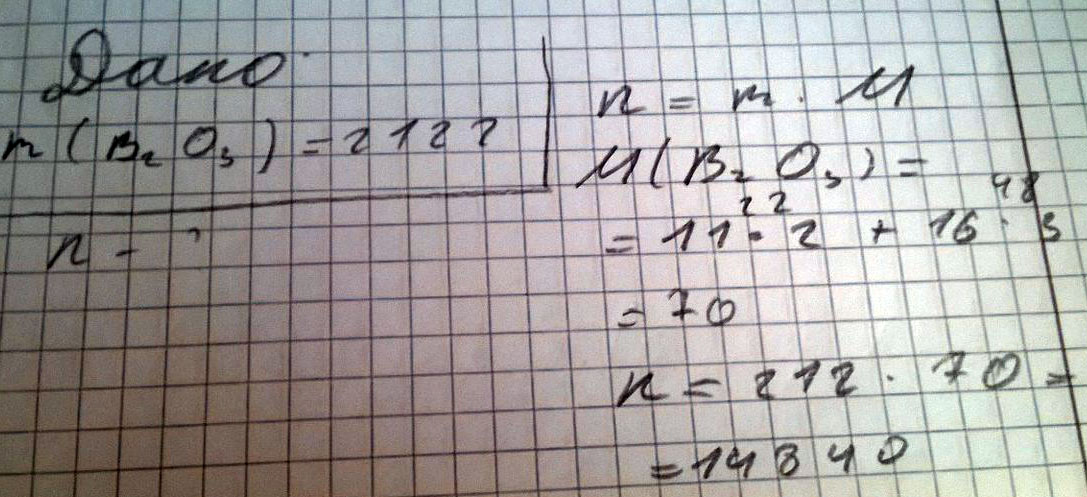 Дано
m (B₂ O₃) = 212 г
n - ?
n = m · M
M (B₂ O₃) =
22 48
= 11 · 2 + 16 · 3
= 70
n = 212 · 70 =
= 14840